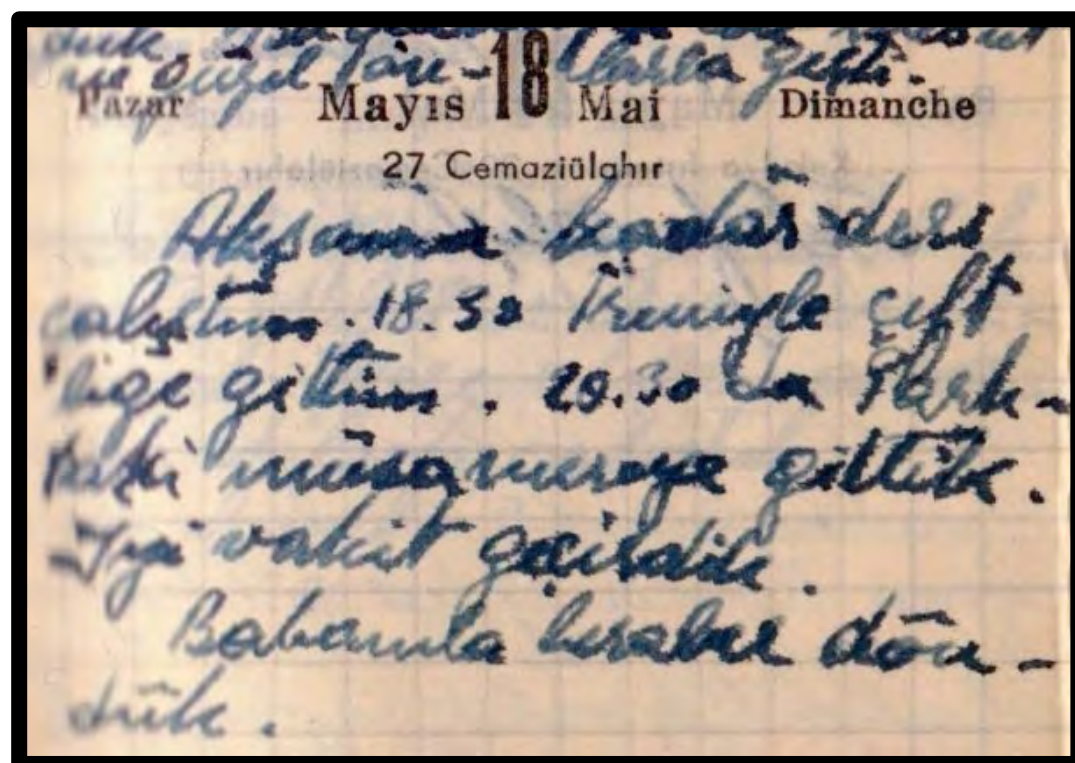 ve güzel
Pazar Mayıs 18 Mai Dimanche
27 Cemaziülahır
Akşama kadar ders
çalıştım. 18.30 treniyle çift
liğe gittim. 20.30 da Park-
taki müsamereye gittik.
İyi vakit geçirdik.
Babamla beraber dön-
dük.